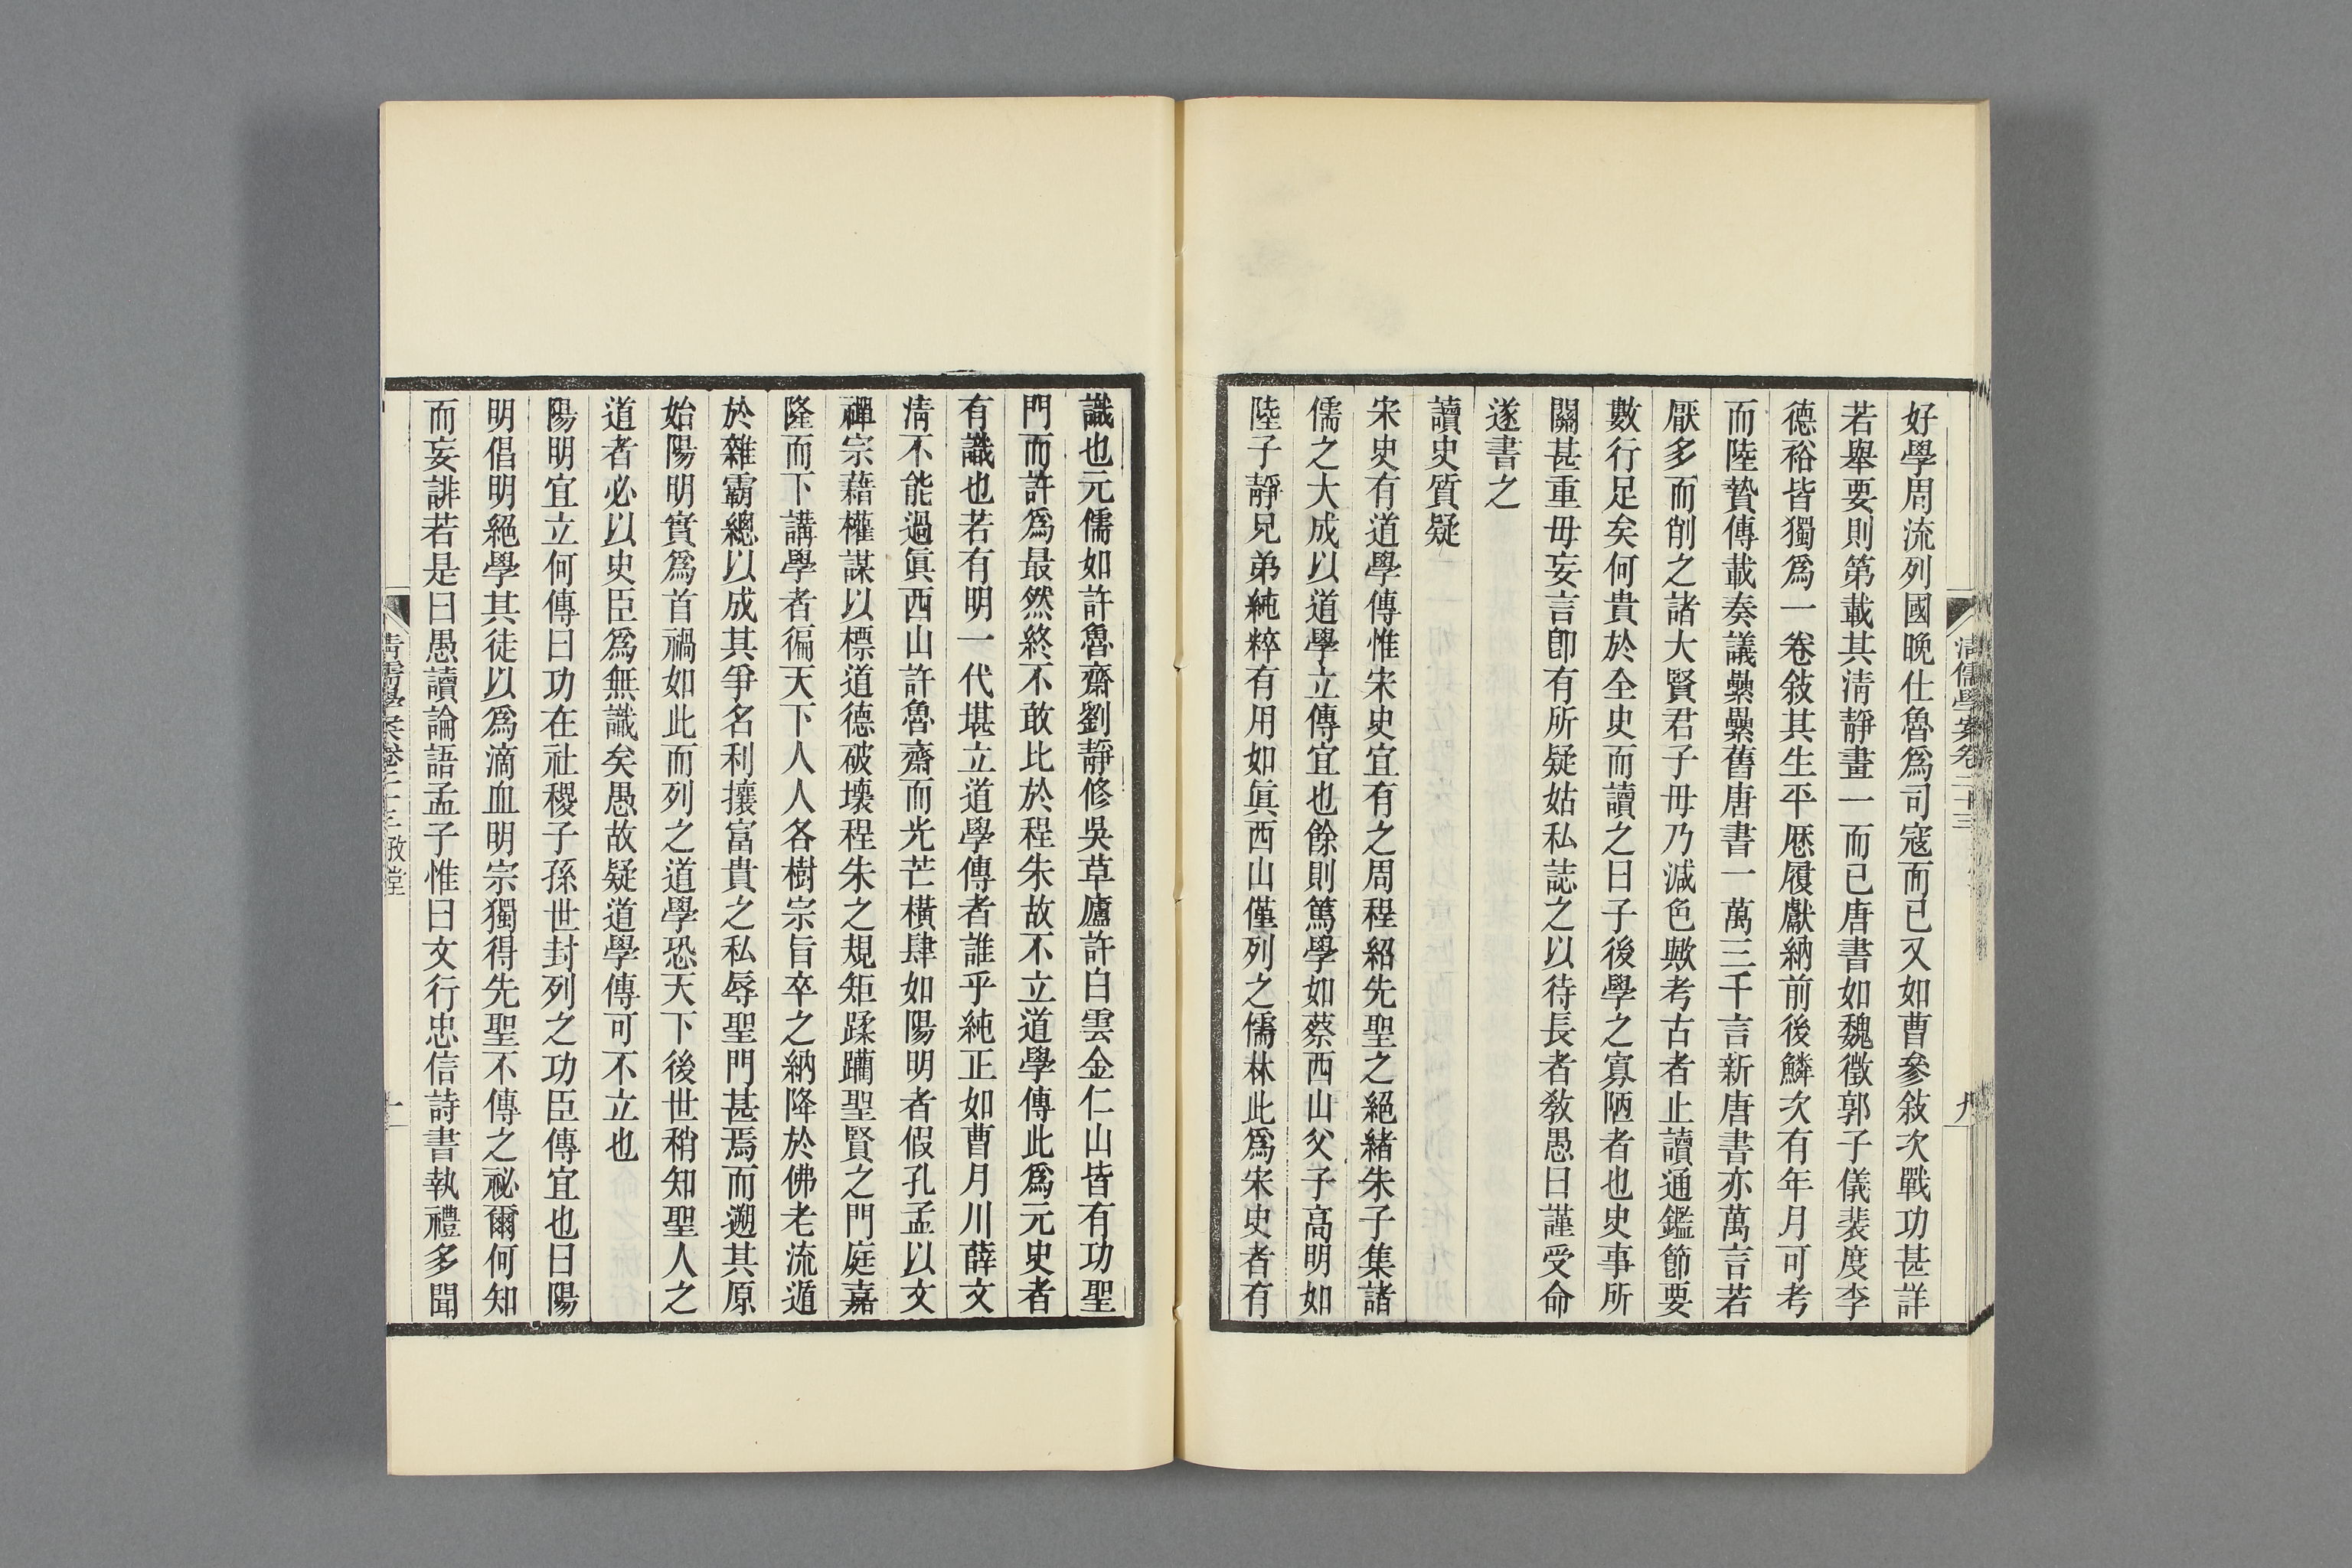 清儒學案卷二十三
九
好學周流列國晚仕魯爲司寇而已又如曹參敍次戰功甚詳
若舉要則第載其淸靜畫一而已唐書如魏徵郭子儀裴度李
德裕皆獨爲一卷敍其生平厯履獻納前後鱗次有年月可考
而陸贄傳載奏議纍纍舊唐書一萬三千言新唐書亦萬言若
厭多而削之諸大賢君子毋乃減色歟考古者止讀通鑑節要
數行足矣何貴於全史而讀之曰子後學之寡陋者也史事所
關甚重毋妄言卽有所疑姑私誌之以待長者敎愚曰謹受命
遂書之
讀史質疑
宋史有道學傳惟宋史宜有之周程紹先聖之絕緖朱子集諸
儒之大成以道學立傳宜也餘則篤學如蔡西山父子高明如
陸子靜兄弟純粹有用如眞西山僅列之儒林此爲宋史者有
識也元儒如許魯齋劉靜修吳草廬許白雲金仁山皆有功聖
門而許爲最然終不敢比於程朱故不立道學傳此爲元史者
有識也若有明一代堪立道學傳者誰乎純正如曹月川薛文
淸不能過眞西山許魯齋而光芒橫肆如陽明者假孔孟以文
禪宗藉權謀以標道德破壞程朱之規矩蹂躪聖賢之門庭嘉
隆而下講學者徧天下人人各樹宗旨卒之納降於佛老流遁
於雜霸總以成其爭名利攘富貴之私辱聖門甚焉而遡其原
始陽明實爲首禍如此而列之道學恐天下後世稍知聖人之
道者必以史臣爲無識矣愚故疑道學傳可不立也
陽明宜立何傳曰功在社稷子孫世封列之功臣傳宜也曰陽
明倡明絕學其徒以爲滴血明宗獨得先聖不傳之祕爾何知
而妄誹若是曰愚讀論語孟子惟曰文行忠信詩書執禮多聞
清儒學案卷二十三 敬堂